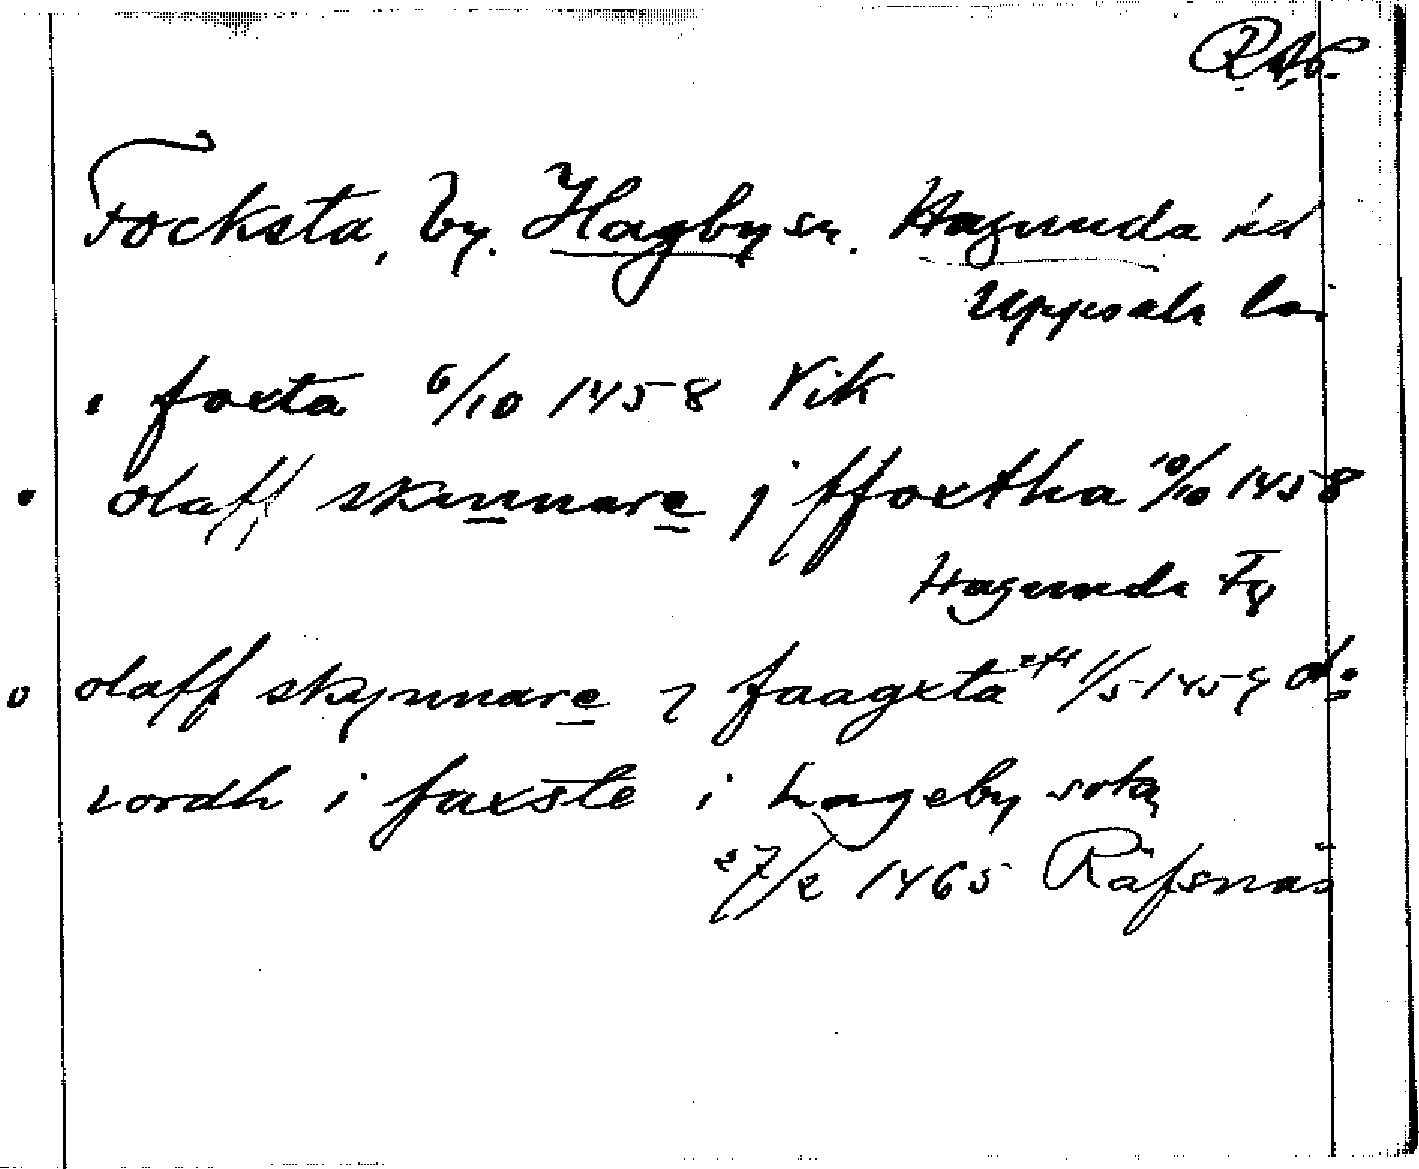 RAP.
Focksta, by. Hagby sn. Hagunda hd
Uppsala län
i foxta 6/10 1458 Vik
olaff skinnare j ffoxtha 10/10 1458
Hagunda
olaff skynnare i faagxta 1/5 1459 do
iordh i faxste i hageby sokn
27/2 1465 Räfsnäs